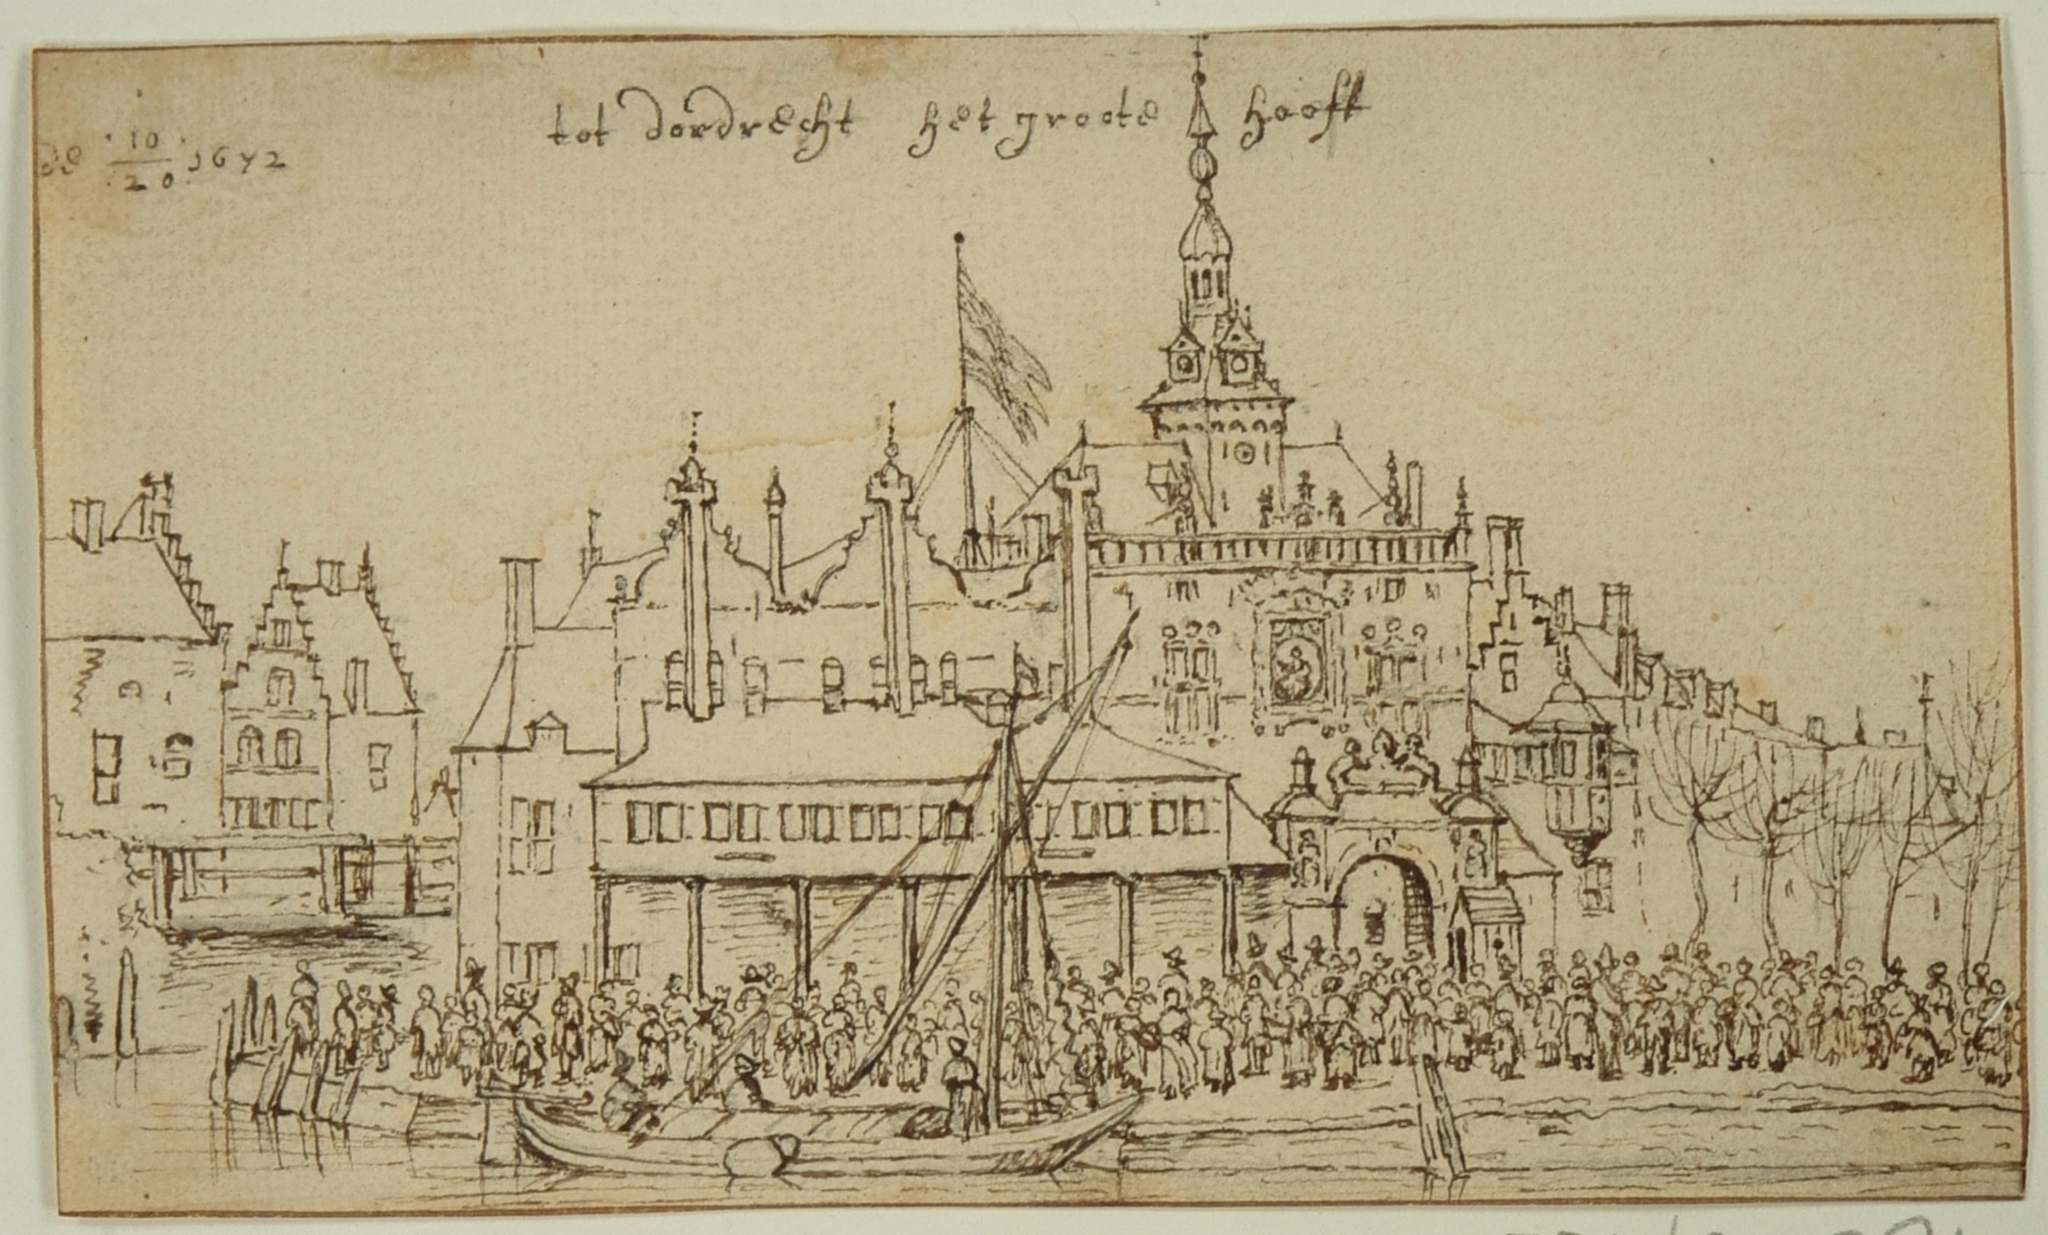 tot dordrecht het groote hooft
de 10/20 1672